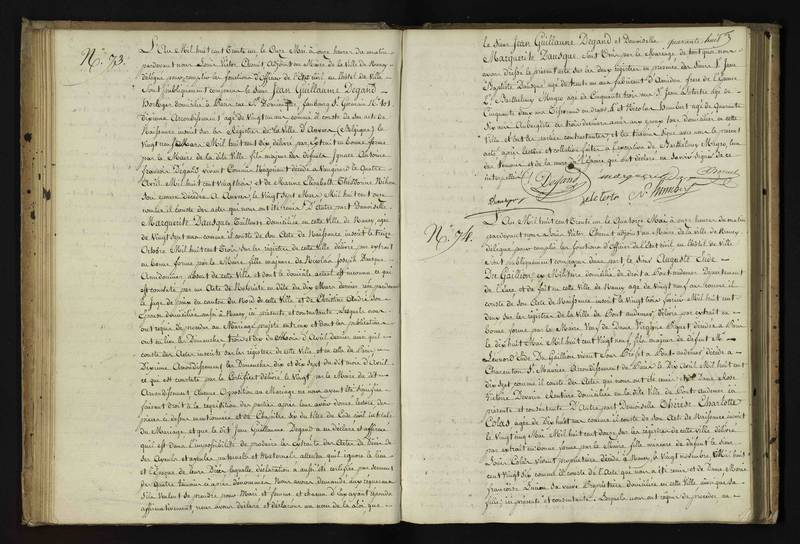 N.° 73.
L'An Mil huit cent Trente un le Onze Mai à onze heures du matin
pardevant nous Louis Victor Chenut, Adjoint au Maire de la Ville de Nancy
délégué pour remplir les fonctions d'Officier de l'Etat civil en l'hôtel de Ville
Sont publiquement comparus le Sieur Jean Guillaume Degand
Horloger domicilié à Paris rue S.t Dominique, faubourg S.t Germain N.°
Dixième Arrondissement âgé de Vingt un ans comme il conste de son acte de
Naissance inscrit sur les Registres de la Ville d'Anvers (Belgique) le
Mil huit cent dix délivré par Extrait en bonne forme
par le Maire de la dite Ville, fils majeur des défunts Ignace Antoine
François Dégand vivant Commis Négociant décédé à Vaugirard le Quatre
Avril Mil huit cent vingt et de Marie Elisabeth
son épouse décédée à Anvers, le vingt sept Mars Mil huit cent onze
comme il conste des actes qui nous ont été remis. D'autre part Demoiselle
Marguerite Dausque Tailleuse domiciliée en cette Ville de Nancy âgée
de Vingt sept ans comme il conste de son Acte de Naissance inscrit le treize
Octobre Mil huit cent Trois sur les registres de cette Ville délivré par extrait
en bonne forme par le Maire, fille majeure de Nicolas Joseph Dausque
Amidonnier absent de cette Ville et dont le domicile actuel est inconnu ce qui
est constaté par un Acte de Notoriété en date du dix Mars dernier, reçu pardevant
le Juge de paix du canton du Nord de cette Ville, et de Christine André son
Epouse domiciliée aussi à Nancy ici présente et consentante. Lesquels nous
ont requis de procéder au Mariage projeté entr'eux et dont les publications
ont eu lieu les Dimanches trois et dix du mois d'Avril dernier ainsi qu'il
conste des Actes inscrits sur les registres de cette Ville, et en celle de Paris
Dixième Arrondissement les Dimanches dix et dix sept du dit mois d'Avril
ce qui est constaté par le Certificat délivré le Vingt par le Maire du dit
Arrondissement. Aucune Opposition au Mariage ne nous ayant été signifiée
faisant droit à la réquisition des parties après leur avoir donné lecture des
pièces ci dessus mentionnées et du Chapitre six du Titre du Code civil intitulé
du Mariage, et que le dit Jean Guillaume Degand a déclaré et affirmé
qu'il est dans l'impossibilité de produire les Extraits des Actes de Décès de
ses Ayeuls et ayeules paternels et Maternels attendu qu'il ignore le lieu
et l'époque de leurs Décès, laquelle déclaration a aussi été certifiée par serment
des Quatre témoins ci après dénommés. Nous avons demandé aux requérans
s'ils veulent se prendre pour Mari et femme et chacun d'eux ayant répondu
affirmativement, nous avons déclaré et déclarons au nom de la Loi que
quarante huit
le Sieur Jean Guillaume Degand et Demoiselle
Marguerite Dausque sont Unis par le Mariage de tout quoi nous
avons dressé le présent acte sur les deux registres en présence des Sieurs
Baptiste Dausque âgé de trente un ans fabricant d'Amidon frère de l'épouse
Barthelemy Mougre âgé de Cinquante trois ans Jean Deletertre âgé de
Cinquante deux ans et Nicolas Humbert âgé de Quarante
Six ans Aubergiste tous domiciliés en cette
Ville et ont les parties contractantes et les témoins signé avec nous le présent
acte après lecture et collation faite à l'exception de Barthelemy Mougre, l'un
des témoins et de la mère de l'épouse qui ont déclaré ne savoir signer de ce
interpellés.
Degand
marguerite
Dausque
N. Humbert
Chenut
N.° 74.
L'An Mil huit cent Trente un le Quatorze Mai à onze heures du matin
pardevant nous Louis Victor Chenut adjoint au Maire de la ville de Nancy
délégué pour remplir les fonctions d'Officier de l'Etat civil en l'hôtel de Ville
sont publiquement comparus d'une part le Sieur Auguste Eude
Du Gaillion, ex Militaire domicilié de droit à Pont audemer Département
de l'Eure et de fait en cette Ville de Nancy âgé de Vingt neuf ans comme il
conste de son Acte de Naissance inscrit le Vingt trois février Mil huit cent
deux sur les registres de la Ville de Pont audemer, délivré par extrait en
bonne forme par le Maire, Veuf de Dame Virginie Piquet décédée à Paris
le dix huit Mai Mil huit cent vingt neuf, fils majeur de défunt M.r
Léonord Eude Du Gaillion vivant Sous Préfet à Pont audemer décédé à
Charenton S.t Maurice Arrondissement de Paris le Dix Avril Mil huit cent
dix sept comme il conste des Actes qui nous ont été remis et de Dame Rose
Victoire Rentière domiciliée en la dite Ville de Pont Audemer ici
présente et consentante. D'Autre part Demoiselle Thérèse Charlotte
Colas âgée de Dix huit ans comme il conste de son Acte de Naissance inscrit
le Vingt cinq Mai Mil huit cent Douze sur les registres de cette Ville délivré
par extrait en bonne forme par le Maire, fille mineure de défunt le Sieur
Louis Colas vivant propriétaire décédé à Nancy, le Vingt novembre Mil huit
cent Vingt six comme il conste de l'Acte qui nous a été remis et de Dame Marie
Françoise sa veuve Propriétaire domiciliée en cette Ville ainsi que sa
fille, ici présente et consentante. Lesquels nous ont requis de procéder au